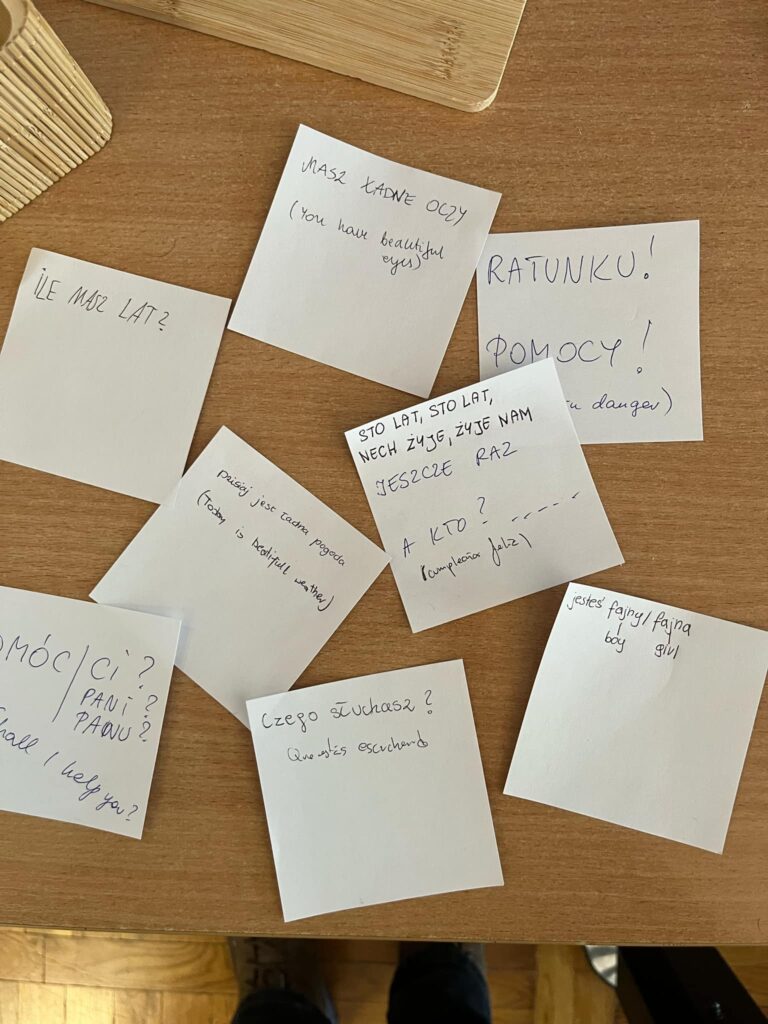 MASZ ŁADNE OCZY
(You have beautiful
eyes)
RATUNKU!
POMOCY!
danger)
ILE MASZ LAT?
STO LAT, STO LAT,
NECH ŻYJE, ŻYJE NAM
JESZCZE RAZ
A KTO? ------
(cumpleaños feliz)
jest ładna pogoda
(Today is beatifull weather)
CI?
PANI?
PANU?
I help you?
Czego słuchasz?
Que estás escuchando
jesteś fajny/fajna
boy girl